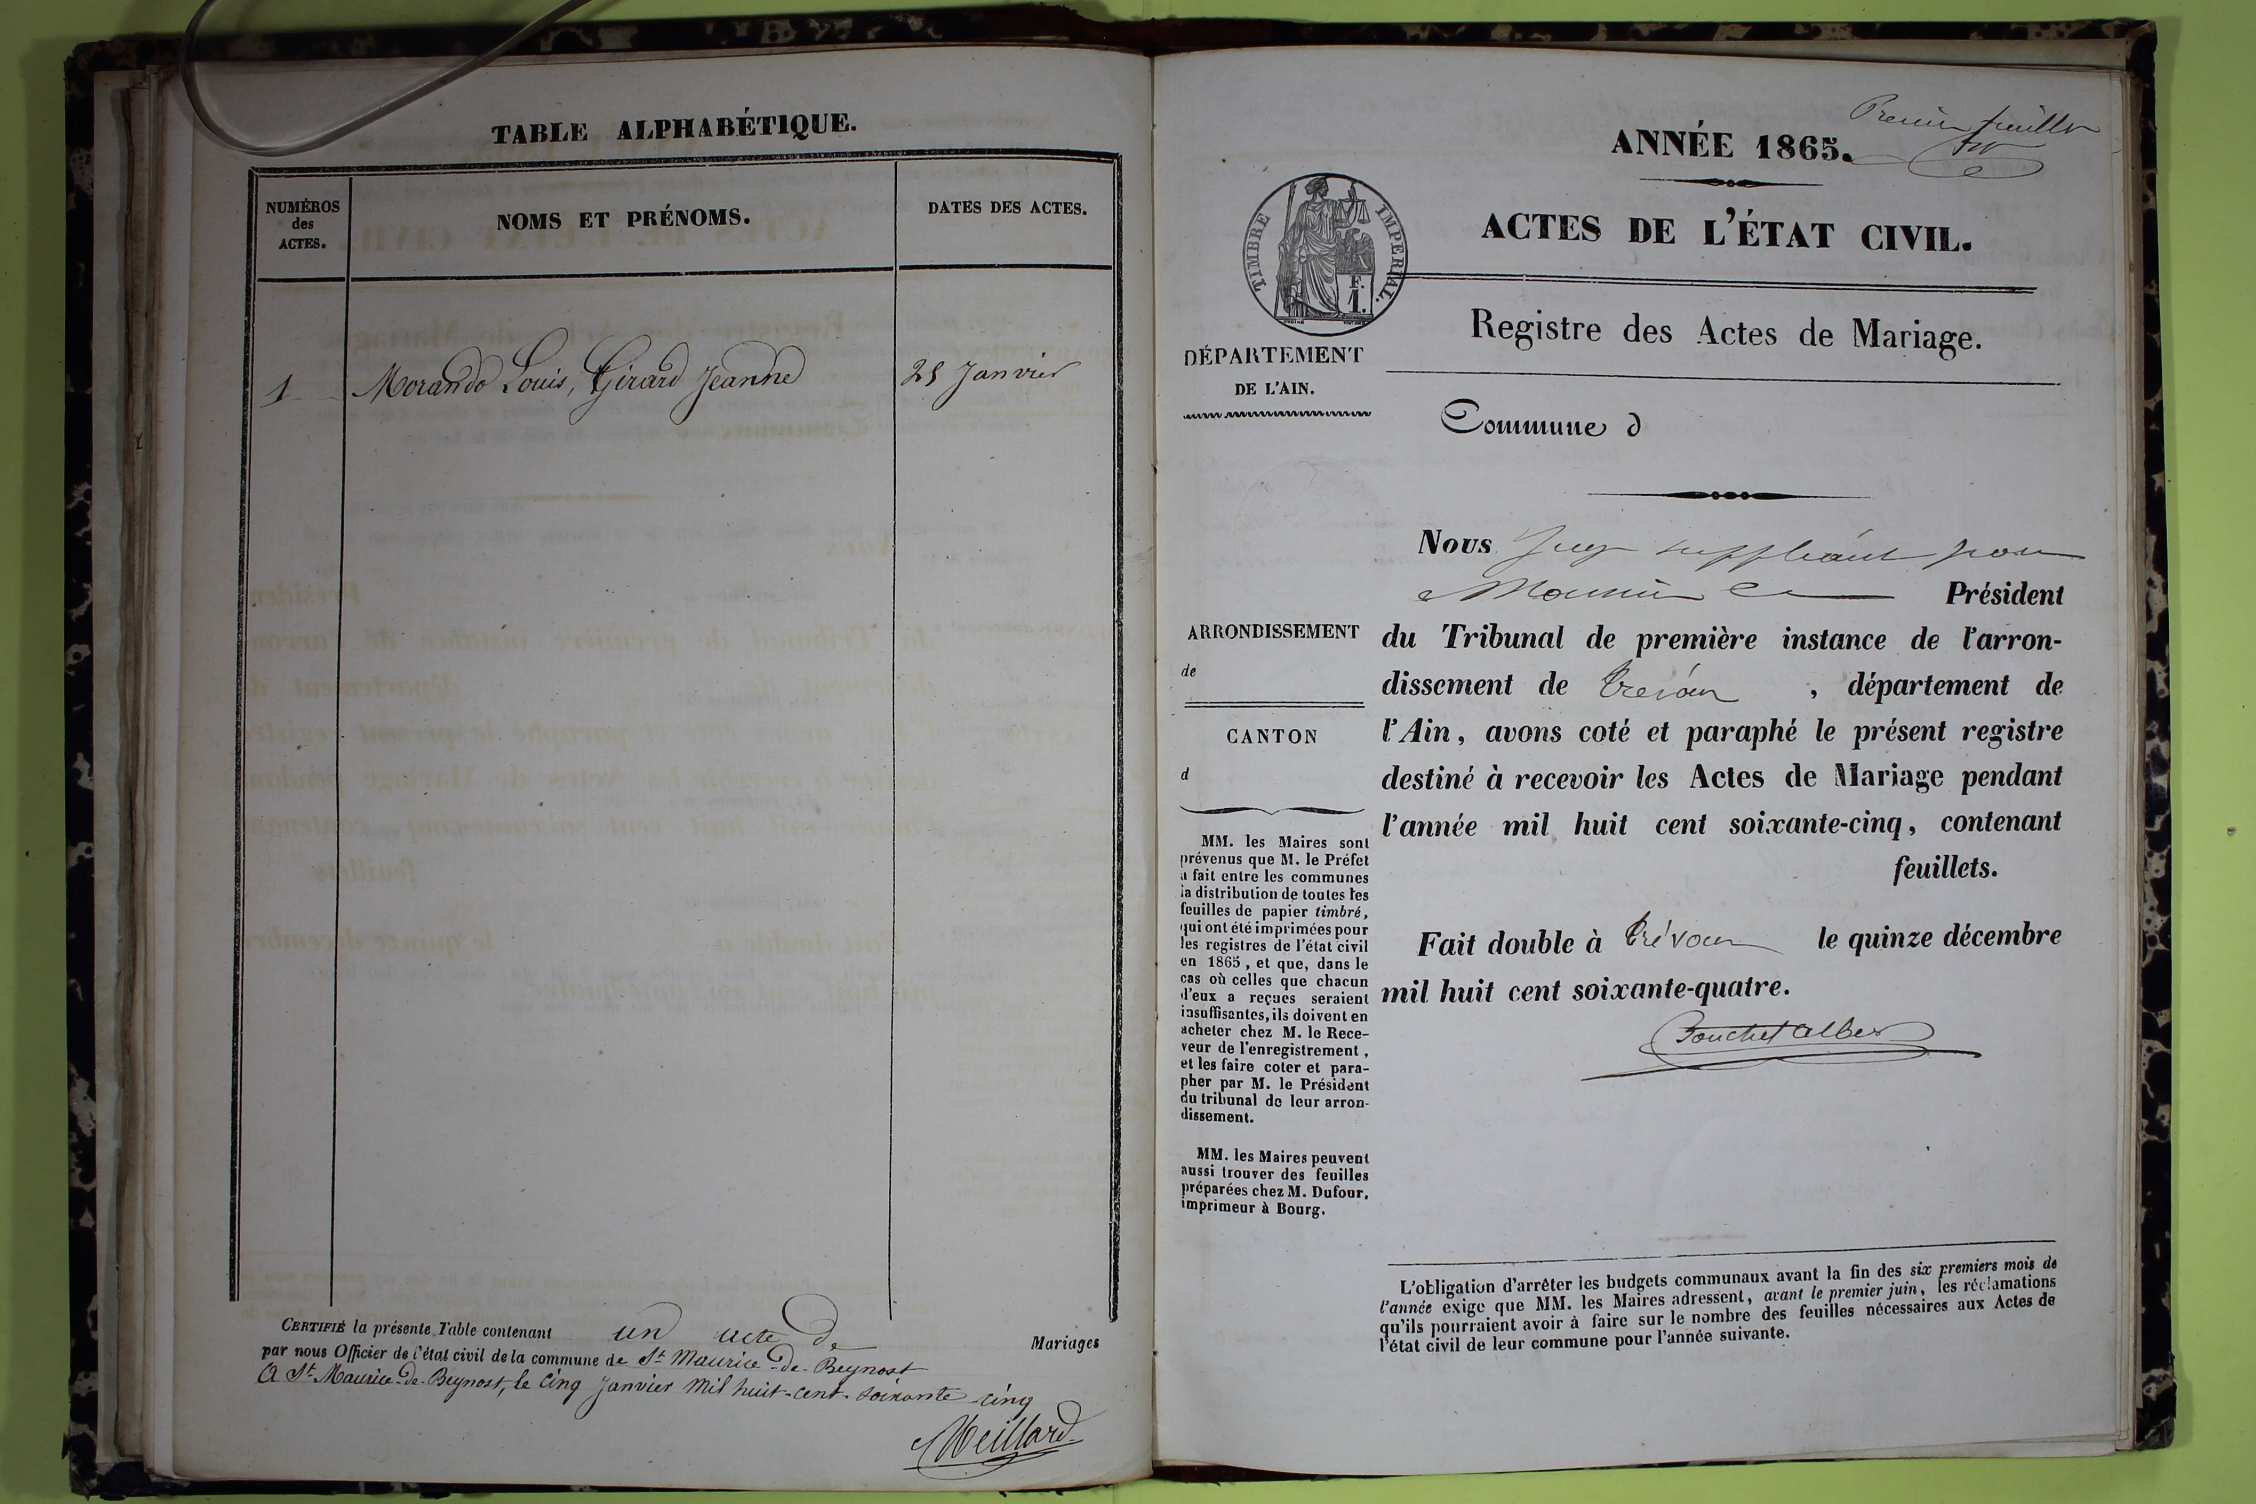 TABLE ALPHABÉTIQUE.
NUMÉROS
des
ACTES.
NOMS ET PRÉNOMS.
DATES DES ACTES.
1 Morando Louis, Girard Jeanne 25 Janvier
CERTIFIÉ la présente Table contenant un acte de Mariages
par nous Officier de l'état civil de la commune de St Maurice-de-Beynost
A St Maurice-de-Beynost, le cinq Janvier mil huit-cent-soixante-cinq
Meillard
Premier feuillet
ANNÉE 1865.
ACTES DE L'ÉTAT CIVIL.
TIMBRE IMPERIAL.
F.
1.
Registre des Actes de Mariage.
DÉPARTEMENT
DE L'AIN.
Commune d
ARRONDISSEMENT
de
CANTON
d
MM. les Maires sont
prévenus que M. le Préfet
a fait entre les communes
la distribution de toutes les
feuilles de papier timbré,
qui ont été imprimées pour
les registres de l'état civil
en 1865, et que, dans le
cas où celles que chacun
d'eux a reçues seraient
insuffisantes, ils doivent en
acheter chez M. le Rece-
veur de l'enregistrement,
et les faire coter et para-
pher par M. le Président
du tribunal de leur arron-
dissement.
MM. les Maires peuvent
aussi trouver des feuilles
préparées chez M. Dufour,
imprimeur à Bourg.
Nous Juge suppléant pour
Monsieur le Président
du Tribunal de première instance de l'arron-
dissement de Trévoux, département de
l'Ain, avons coté et paraphé le présent registre
destiné à recevoir les Actes de Mariage pendant
l'année mil huit cent soixante-cinq, contenant
feuillets.
Fait double à Trévoux le quinze décembre
mil huit cent soixante-quatre.
L'obligation d'arrêter les budgets communaux avant la fin des six premiers mois de
l'année exige que MM. les Maires adressent, avant le premier juin, les réclamations
qu'ils pourraient avoir à faire sur le nombre des feuilles nécessaires aux Actes de
l'état civil de leur commune pour l'année suivante.